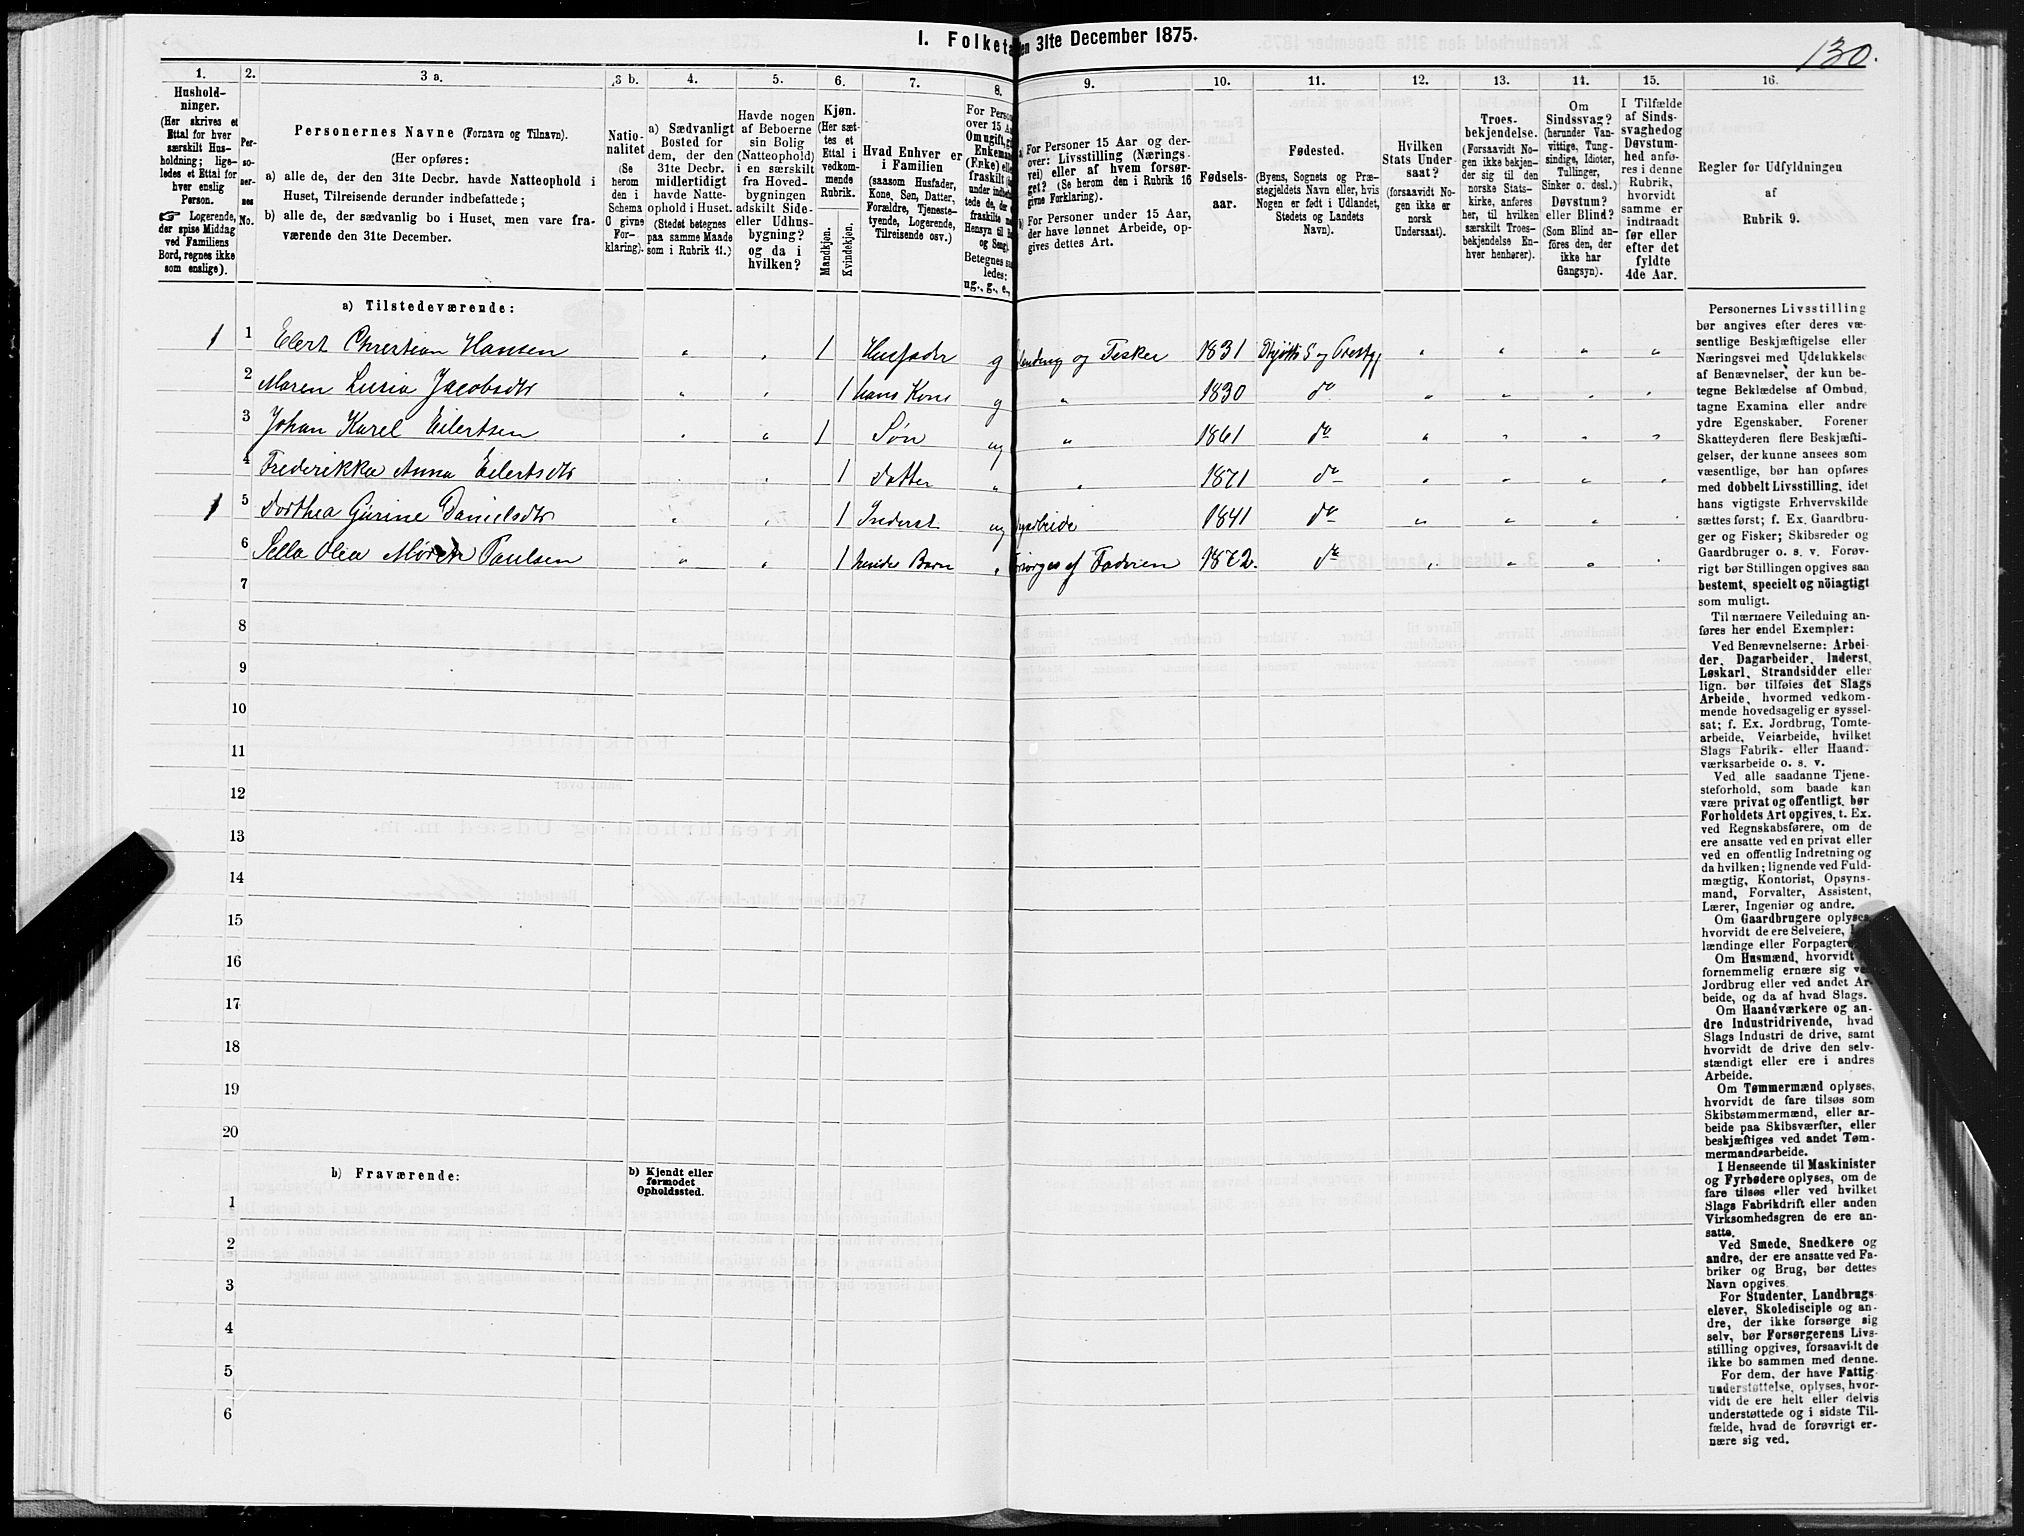 I. Folketa en 31te December 1875.
130.
1. 2. 3 a. 3 b. 4. 5. 6. 7. 8. 9. 10. 11. 12. 13. 14. 15. 16.
Hushold-
ninger.
(Her skrives et
Ettal for hver
særskilt Hus-
holdning; lige-
ledes et Ettal for
hver enslig
Person.
☞ Logerende,
der spise Middag
ved Familiens
Bord, regnes ikke
som enslige).
Per-
so-
ner-
nes
No.
Personernes Navne (Fornavn og Tilnavn).
(Her opføres:
a) alle de, der den 31te Decbr. havde Natteophold i
Huset, Tilreisende derunder indbefattede;
b) alle de, der sædvanlig bo i Huset, men vare fra-
værende den 31te December.
Natio-
nalitet
(Se
herom
den i
Schema
O givne
For-
klaring).
a) Sædvanligt
Bosted for
dem, der den
31te Decbr.
midlertidigt
havde Natte-
ophold i Huset.
(Stedet betegnes
paa samme Maade
som i Rubrik 11.)
Havde nogen
af Beboerne
sin Bolig
(Natteophold)
i en særskilt
fra Hoved-
bygningen
adskilt Side-
eller Udhus-
bygning?
og da i
hvilken?
Kjøn.
(Her sæt-
tes et
Ettal i
vedkom-
mende
Rubrik.
Mandkjøn.
Kvindekjøn.
Hvad Enhver er
i Familien
(saasom Husfader,
Kone, Søn, Datter,
Forældre, Tjeneste-
tyende, Logerende,
Tilreisende osv.)
For Perso
over 15 Aa
Om ugift, gi
Enkemand
(Fæke) elle
fraskilt
under indbe
tede de, der
fraskilte
Hensyn til
og Seng).
Betegnes saa
ledes:
ug., g., e.,
a) For Personer 15 Aar og der-
over: Livsstilling (Nærings
vei) eller af hvem forsør-
get? (Se herom den i Rubrik 16
givne Forklaring).
b) For Personer under 15 Aar,
der have lønnet Arbeide, op-
gives dettes Art.
Fødsels-
aar.
Fødested.
(Byens, Sognets og Præ-
stegjeldets Navn eller, hvis
Nogen er født i Udlandet,
Stedets og Landets
Navn).
Hvilken
Stats Under-
saat?
(forsaavidt No-
gen ikke er
norsk
Undersaat).
Troes-
bekjendelse.
(Forsaavidt No-
gen ikke bekjen-
der sig til den
norske Stats-
kirke, anføres
her, til hvilken
særskilt Troes-
bekjendelse En-
hver henhører).
Om
Sindssvag?
(herunder Van-
vittige, Tung-
sindige, Idioter,
Tullinger,
Sinker o. desl.)
Døvstum?
eller Blind?
(Som Blind an-
føres den, der
ikke har
Gangsyn).
I Tilfælde
af Sinds-
svaghed og
Døvstum-
hed anfø-
res i denne
Rubrik,
hvorvidt
samme er
indtraadt
før eller
efter det
fyldte
4de Aar.
Regler for Udfyldningen
af
Rubrik 9.
a) Tilstedeværende:
1 1 Elert Christian Hansen " " 1 Husfader g og Fisker 1831 " " " "
2 Maren Lusia Jacobsdtr " " 1 hans Kone g " 1830 do " " " "
3 Johan Karel Eilertsen " " 1 Søn ug " 1861 do " " " "
4 Frederikke Anna Eilertsdtr " " 1 datter " " 1871 do " " " "
1 5 Dorthea Gurine Danielsdtr " " 1 Inderst ug 1841 do " " " "
6 Sella Olea Møren Paulsen " " 1 hendes Barn " forsørges af 1872. do " " " "
7
8
9
10
11
12
13
14
15
16
17
18
19
20
b) Fraværende:
b) Kjendt eller
formodet
Opholdssted.
1
2
3
4
5
6
Personernes Livsstilling
bør angives efter deres væ-
sentlige Beskjæftigelse eller
Næringsvei med Udelukkelse
af Benævnelser, der kun be-
tegne Beklædelse af Ombud,
tagne Examina eller andre
ydre Egenskaber. Forener
Skatteyderen flere Beskjæfti-
gelser, der kunne ansees som
væsentlige, bør han opføres
med dobbelt Livsstilling, idet
hans vigtigste Erhvervskilde
sættes først; f. Ex. Gaardbru-
ger og Fisker; Skibsreder og
Gaardbruger o. s. v. Forøv-
rigt bør Stillingen opgives saa
bestemt, specielt og nöiagtigt
som muligt.
Til nærmere Veiledning an-
føres her endel Exempler:
Ved Benævnelserne: Arbei-
der, Dagarbeider, Inderst,
Løskarl, Strandsidder eller
lign. bør tilføies det Slags
Arbeide, hvormed vedkom-
mende hovedsagelig er syssel-
sat; f. Ex. Jordbrug, Tomte-
arbeide, Veiarbeide, hvilket
Slags Fabrik- eller Haand-
værksarbeide o. s. v.
Ved alle saadanne Tjene-
steforhold, som baade kan
være privat og offentligt, bør
Forholdets Art opgives, t. Ex.
ved Regnskabsførere, om de
ere ansatte ved en privat eller
ved en offentlig Indretning og
da hvilken; lignende ved Fuld-
mægtig, Kontorist, Opsyns-
mand, Forvalter, Assistent,
Lærer, Ingeniør og andre.
Om Gaardbrugere oplyses,
hvorvidt de ere Selveiere,
lændinge eller Forpagtere
Om Husmænd, hvorvidt
fornemmelig ernære sig ved
Jordbrug eller ved andet Ar-
beide, og da af hvad Slags.
Om Haandværkere og an-
dre Industridrivende, hvad
Slags Industri de drive, samt
hvorvidt de drive den selv-
stændigt eller ere i andres
Arbeide.
Om Tømmermænd oplyses,
hvorvidt de fare tilsøs som
Skibstømmermænd, eller ar-
beide paa Skibsværfter, eller
beskjæftiges ved andet Tøm-
mermandsarbeide.
I Henseende til Maskinister
og Fyrbødere oplyses, om de
fare tilsøs eller ved hvilket
Slags Fabrikdrift eller anden
Virksomhedsgren de ere an-
satte.
Ved Smede, Snedkere og
andre, der ere ansatte ved Fa-
briker og Brug, bør dettes
Navn opgives.
For Studenter, Landbrugs-
elever, Skoledisciple og an-
dre, der ikke forsørge sig
selv, bør Forsørgerens Livs-
stilling opgives, forsaavidt de
ikke bo sammen med denne.
For dem, der have Fattig-
understøttelse, oplyses, hvor-
vidt de ere helt eller delvis
understøttede og i sidste Til-
fælde, hvad de forøvrigt er-
nære sig ved.